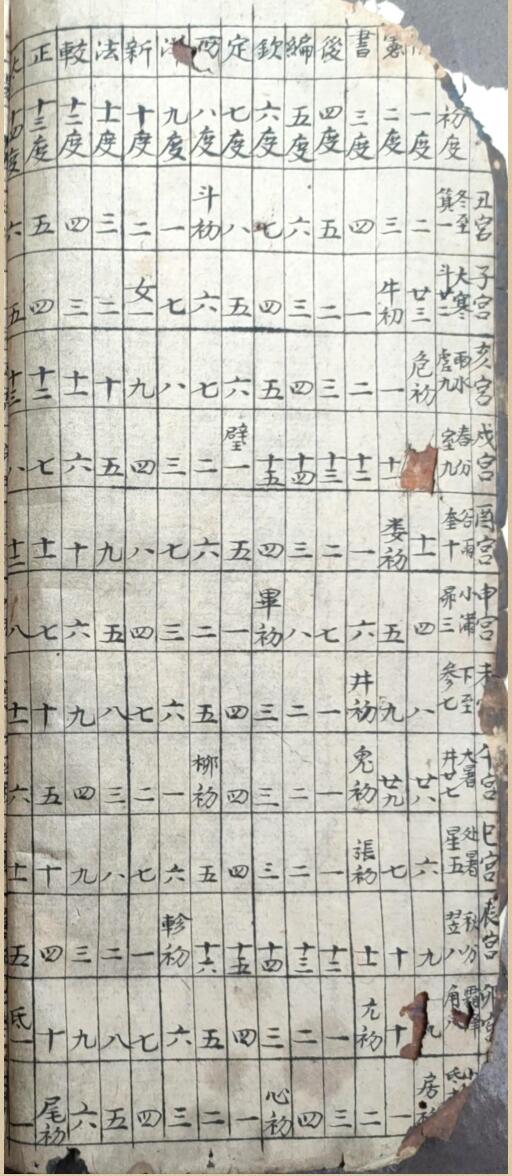 憲 書 後 編 欽 定 西 洋 新 法 較 正
初度 一度 二度 三度 四度 五度 六度 七度 八度 九度 十度 十一度 十二度 十三度 十四度
丑宮 冬至 箕一 二 三 四 五 六 七 八 斗初 一 二 三 四 五 六
子宮 大寒 斗廿二 廿三 牛初 一 二 三 四 五 六 七 女一 二 三 四 五
亥宮 雨水 虛九 危初 一 二 三 四 五 六 七 八 九 十 十一 十二 十三
戌宮 春分 室九 十一 十二 十三 十四 十五 璧一 二 三 四 五 六 七 八
酉宮 谷雨 奎十 十一 娄初 一 二 三 四 五 六 七 八 九 十 十一 十二
申宮 小滿 昴三 四 五 六 七 八 畢初 一 二 三 四 五 六 七 八
未 下至 参七 八 九 井初 一 二 三 四 五 六 七 八 九 十 十一
午宮 大暑 井廿七 廿八 廿九 鬼初 一 二 三 四 柳初 一 二 三 四 五 六
巳宮 处暑 星五 六 七 張初 一 二 三 四 五 六 七 八 九 十 十一
辰宮 秋分 翌八 九 十 十一 十二 十三 十四 十五 十六 軫初 一 二 三 四 五
卯宮 霜降 角 九 十 亢初 一 二 三 四 五 六 七 八 九 十 氐一
房初 一 二 三 四 心初 一 二 三 四 五 六 尾初 一